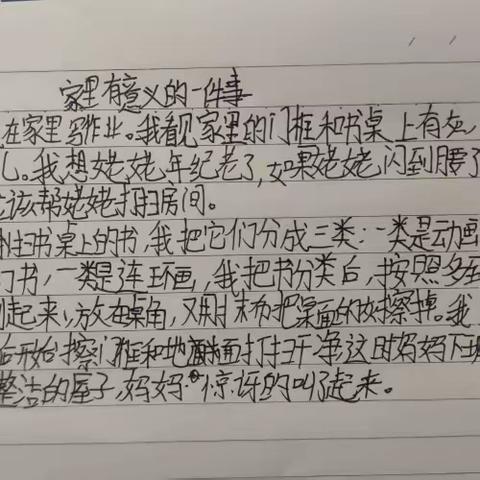 家里有意义的一件事
在家里写作业。我看见家里的门框和书桌上有灰,
儿。我想姥姥年纪老了,如果姥姥闪到腰了
应该帮姥姥打扫房间。
扫书桌上的书,我把它们分成三类:一类是动画
门书,一类是连环画,我把书分类后,按照多至
起来,放在桌角,又用抹布把桌面的灰擦掉。我
后开始擦门框和地面打扫干净,这时妈妈下班
整洁的屋子,妈妈惊讶的叫了起来。